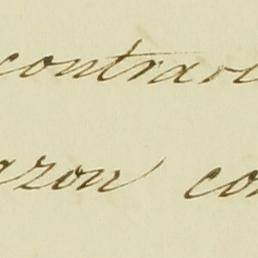 contrari
azon con